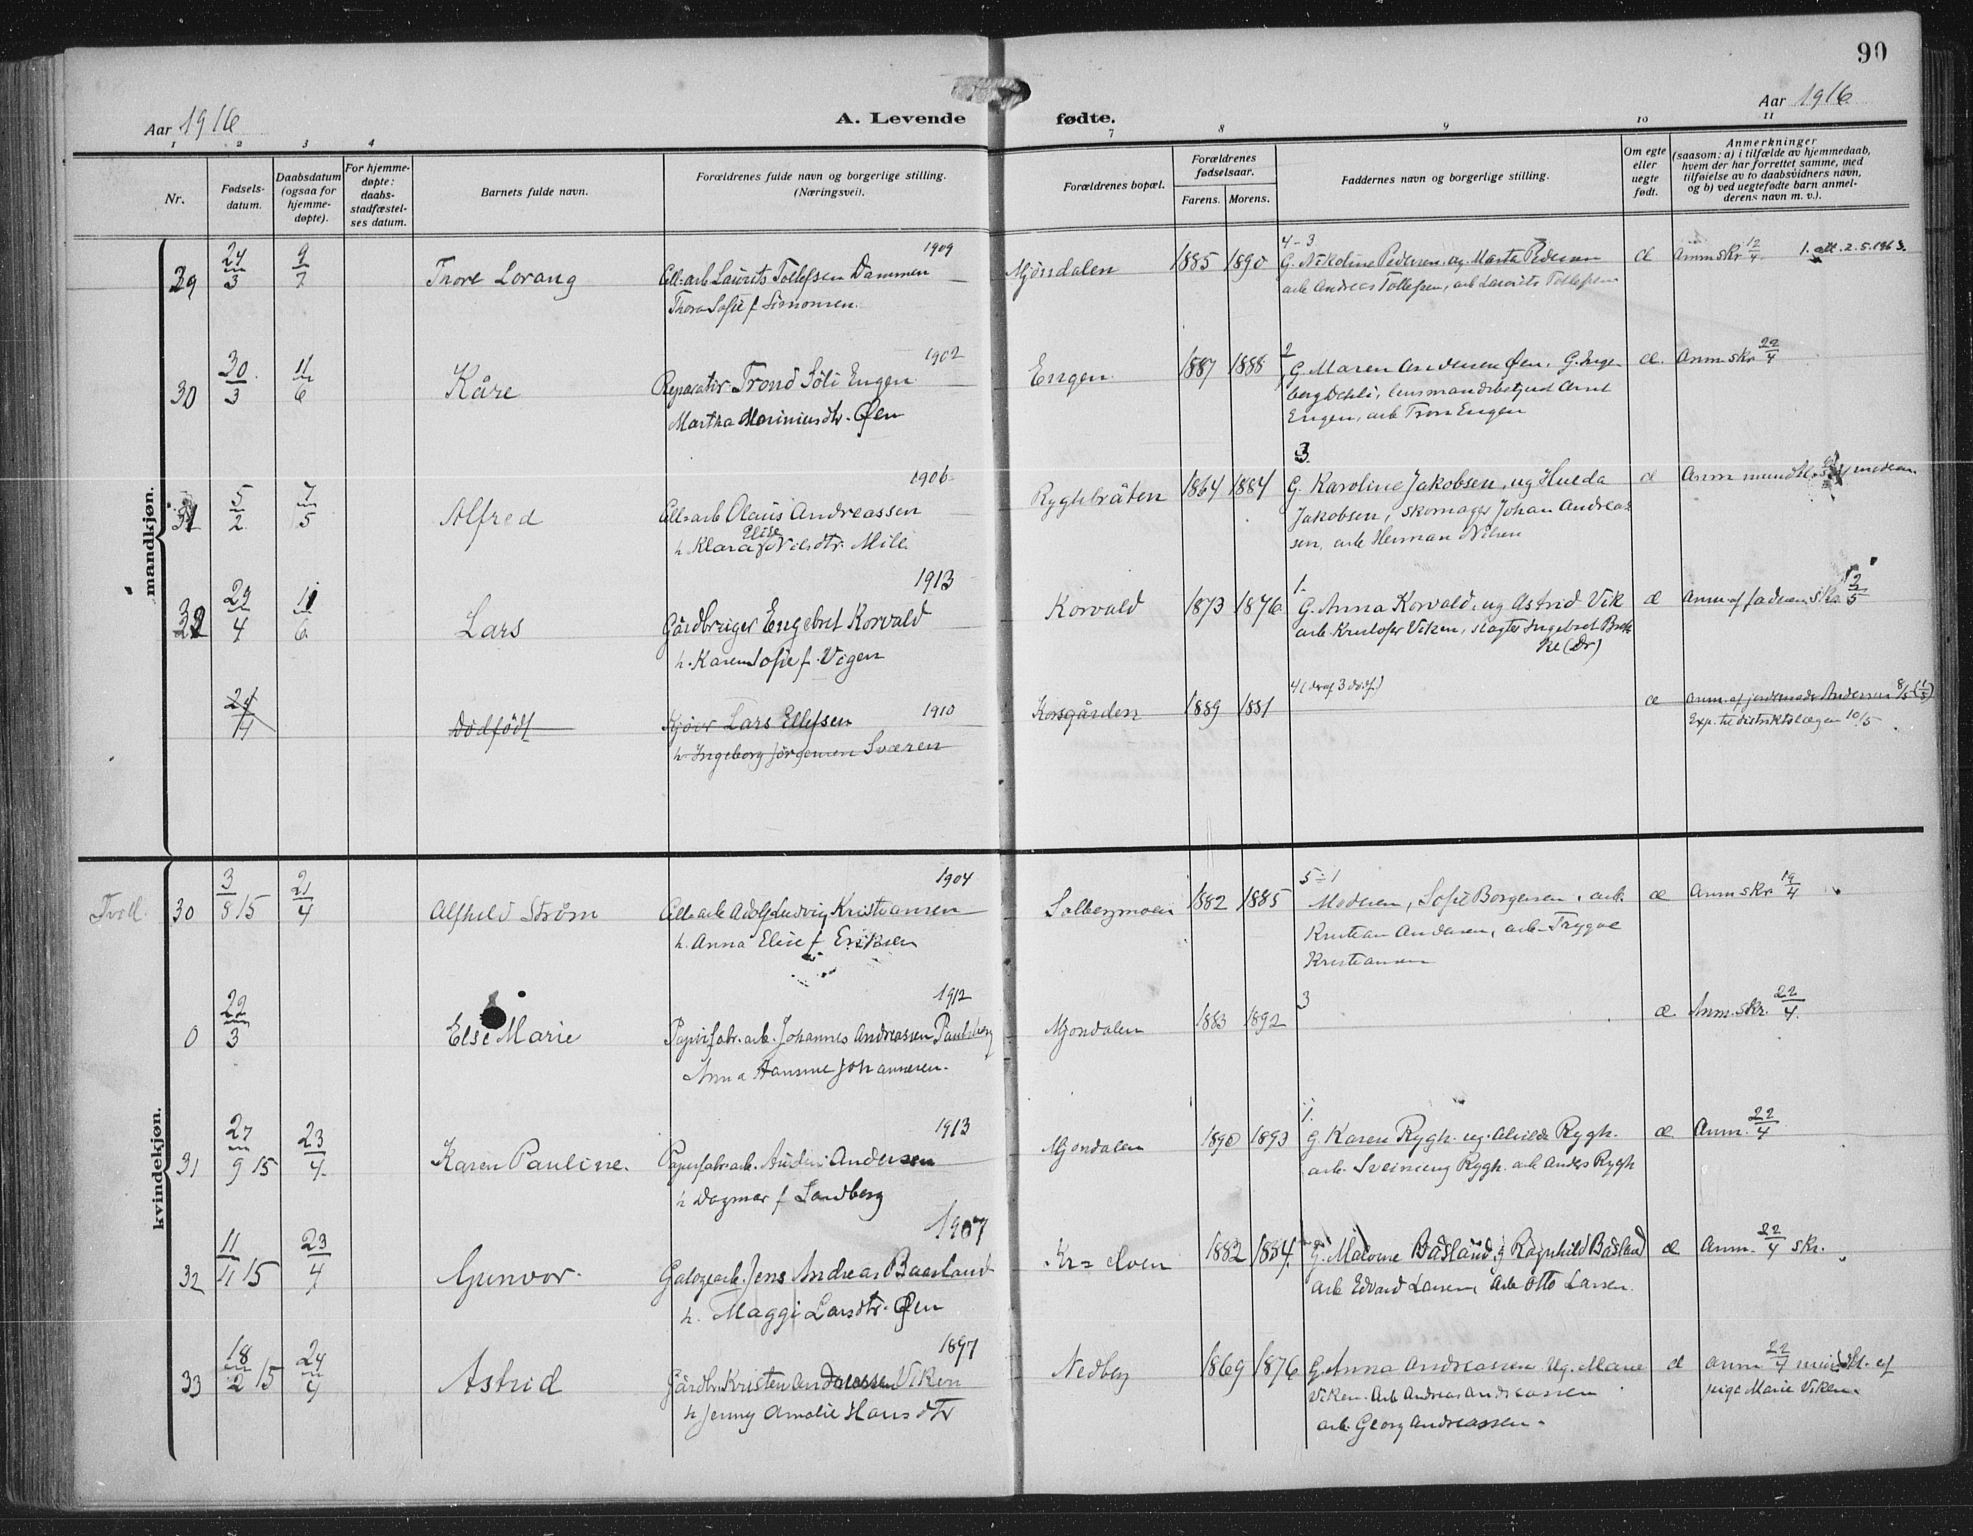 90
Aar 1916
A. Levende fødte.
Aar 1916
1 2 3 4 7 8 9 10 11
Nr.
Fødsels-
datum.
Daabsdatum
(ogsaa for
hjemme-
døpte).
For hjemme-
døpte:
daabs-
stadfæstel-
ses datum.
Barnets fulde navn.
Forældrenes fulde navn og borgerlige stilling.
(Næringsvei).
Forældrenes bopæl.
Forældrenes
fødselsaar.
Farens. Morens.
Faddernes navn og borgerlige stilling.
Om egte
eller
uegte
født.
Anmerkninger
(saasom: a) i tilfælde av hjemmedaab,
hvem der har forrettet samme, med
tilføielse av to daabsvidners navn,
og b) ved uegtefødte barn anmel-
derens navn m. v.).
mandkjøn.
29 24/3 9/7 Thore Lorang
1909
Cell=arb Laurits Tollefsen Dammen
Thora Sofie f Simonsen.
Mjøndalen 1885 1890
4-3
G. Nikoline Pedersen, ug. Marta Pedersen
arb Andreas Tollefsen, arb Laurits Tollefsen
æ Anm skr 12/4 1. att. 2.5.1963.
30 30/3 11/6 Kåre
1902
Reparatør Trond Söli Engen
Martha Mariniusdtr. Øen
Engen 1887 1888
2
G. Maren Andersen Øen, G. Inge
berg Dehli, lensmandsbetjent Arnt
Engen, arb Tron Engen
æ. Anm skr 22/4
31 5/2 7/5 Alfred
1906
Cell=arb Olaus Andreassen
Elise
h. Klara f Nilsdtr. Mile
Ryghbråten 1864 1884
3.
G. Karoline Jakobsen, ug Hulda
Jakobsen, skomager Johan Andrea=
sen, arb Herman Nilsen
æ Anm mundtl. moderen
32 29/4 11/6 Lars
1913
Gårdbruger Engebret Korvald
h. Karen Sofie f. Vigen
Korvald 1873 1876
1.
G. Anna Korvald, ug Astrid Vik
arb. Kristofer Viken, slagter Ingebret Brek
ke (Dr)
æ Anm af faderen skr. 2/5
24/4 Dødfødt
1910
Kjøre Lars Ellefsen
h Ingeborg Jørgensen Sværen
Korsgården 1889 1881
4 (deraf 3 dødf.)
æ Anm. af jordemoder Andersen 8/5 (11/5)
Exp. til distriktslægen 10/5
kvindekjøn.
Tvill. 30 3/8 15 21/4 Alfhild Strøm
1904
Cell=arb Adolf Ludvig Kristiansen
h. Anna Elise f Eriksen
Solbergmoen 1882 1885
5-1
Moderen, Sofie Borgersen, arb
Kristian Andersen, arb Trygve
Kristiansen
æ Anm skr 19/4
0 22/3 Else Marie
1912
Papirfabr. arb. Johannes Andreassen Paulsberg
Anna Hansine Johannesen.
Mjøndalen 1883 1892
3
æ. Anm. skr. 22/4.
31 27/9 15 23/4 Karen Pauline.
1913
Papirfabr arb. Andersen
h Dagmar f Sandberg
Mjøndalen 1890 1893
1.
G Karen Rygh. ug. Alvilde Rygh.
arb. Sveinung Rygh. arb Anders Rygh
æ Anm. 22/4
32 11/11 15 23/4 Gunvor.
1907
Galoge arb. Jens Andreas Baasland
h. Maggi Larsdtr. Øen
Kr= Elven 1882 1884.
G. Malvine Båsland, g Ragnhild Båsland
arb Edvard Larsen, Arb Otto Larsen.
æ Anm. 22/4 skr.
33 18/2 15 24/4 Astrid
1897
Gårdbr. Kristen Andreassen Viken
h Jenny Amalie Hansdtr
Nedberg 1869 1876
G. Anna Andreassen Ug. Marie
Viken. Arb Andreas Andreassen
arb. Georg Andreassen.
æ Anm 22/4 mundtl. af
pige Marie Viken.